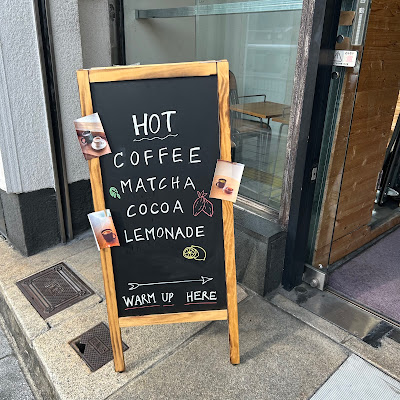 HOT
COFFEE
MATCHA
COCOA
LEMONADE
WARM UP HERE